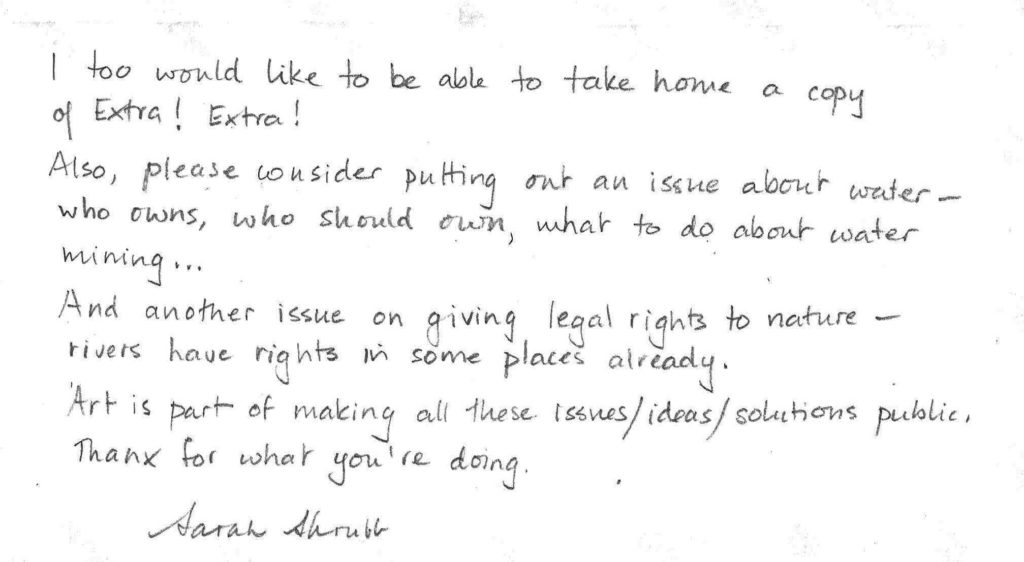 I too would like to be able to take home a copy
of Extra! Extra!
Also, please consider putting out an issue about water –
who owns, who should own, what to do about water
mining...
And another issue on giving legal rights to nature –
rivers have rights in some places already.
Art is part of making all these issues/ideas/solutions public.
Thanx for what you're doing.
Sarah Shrubb